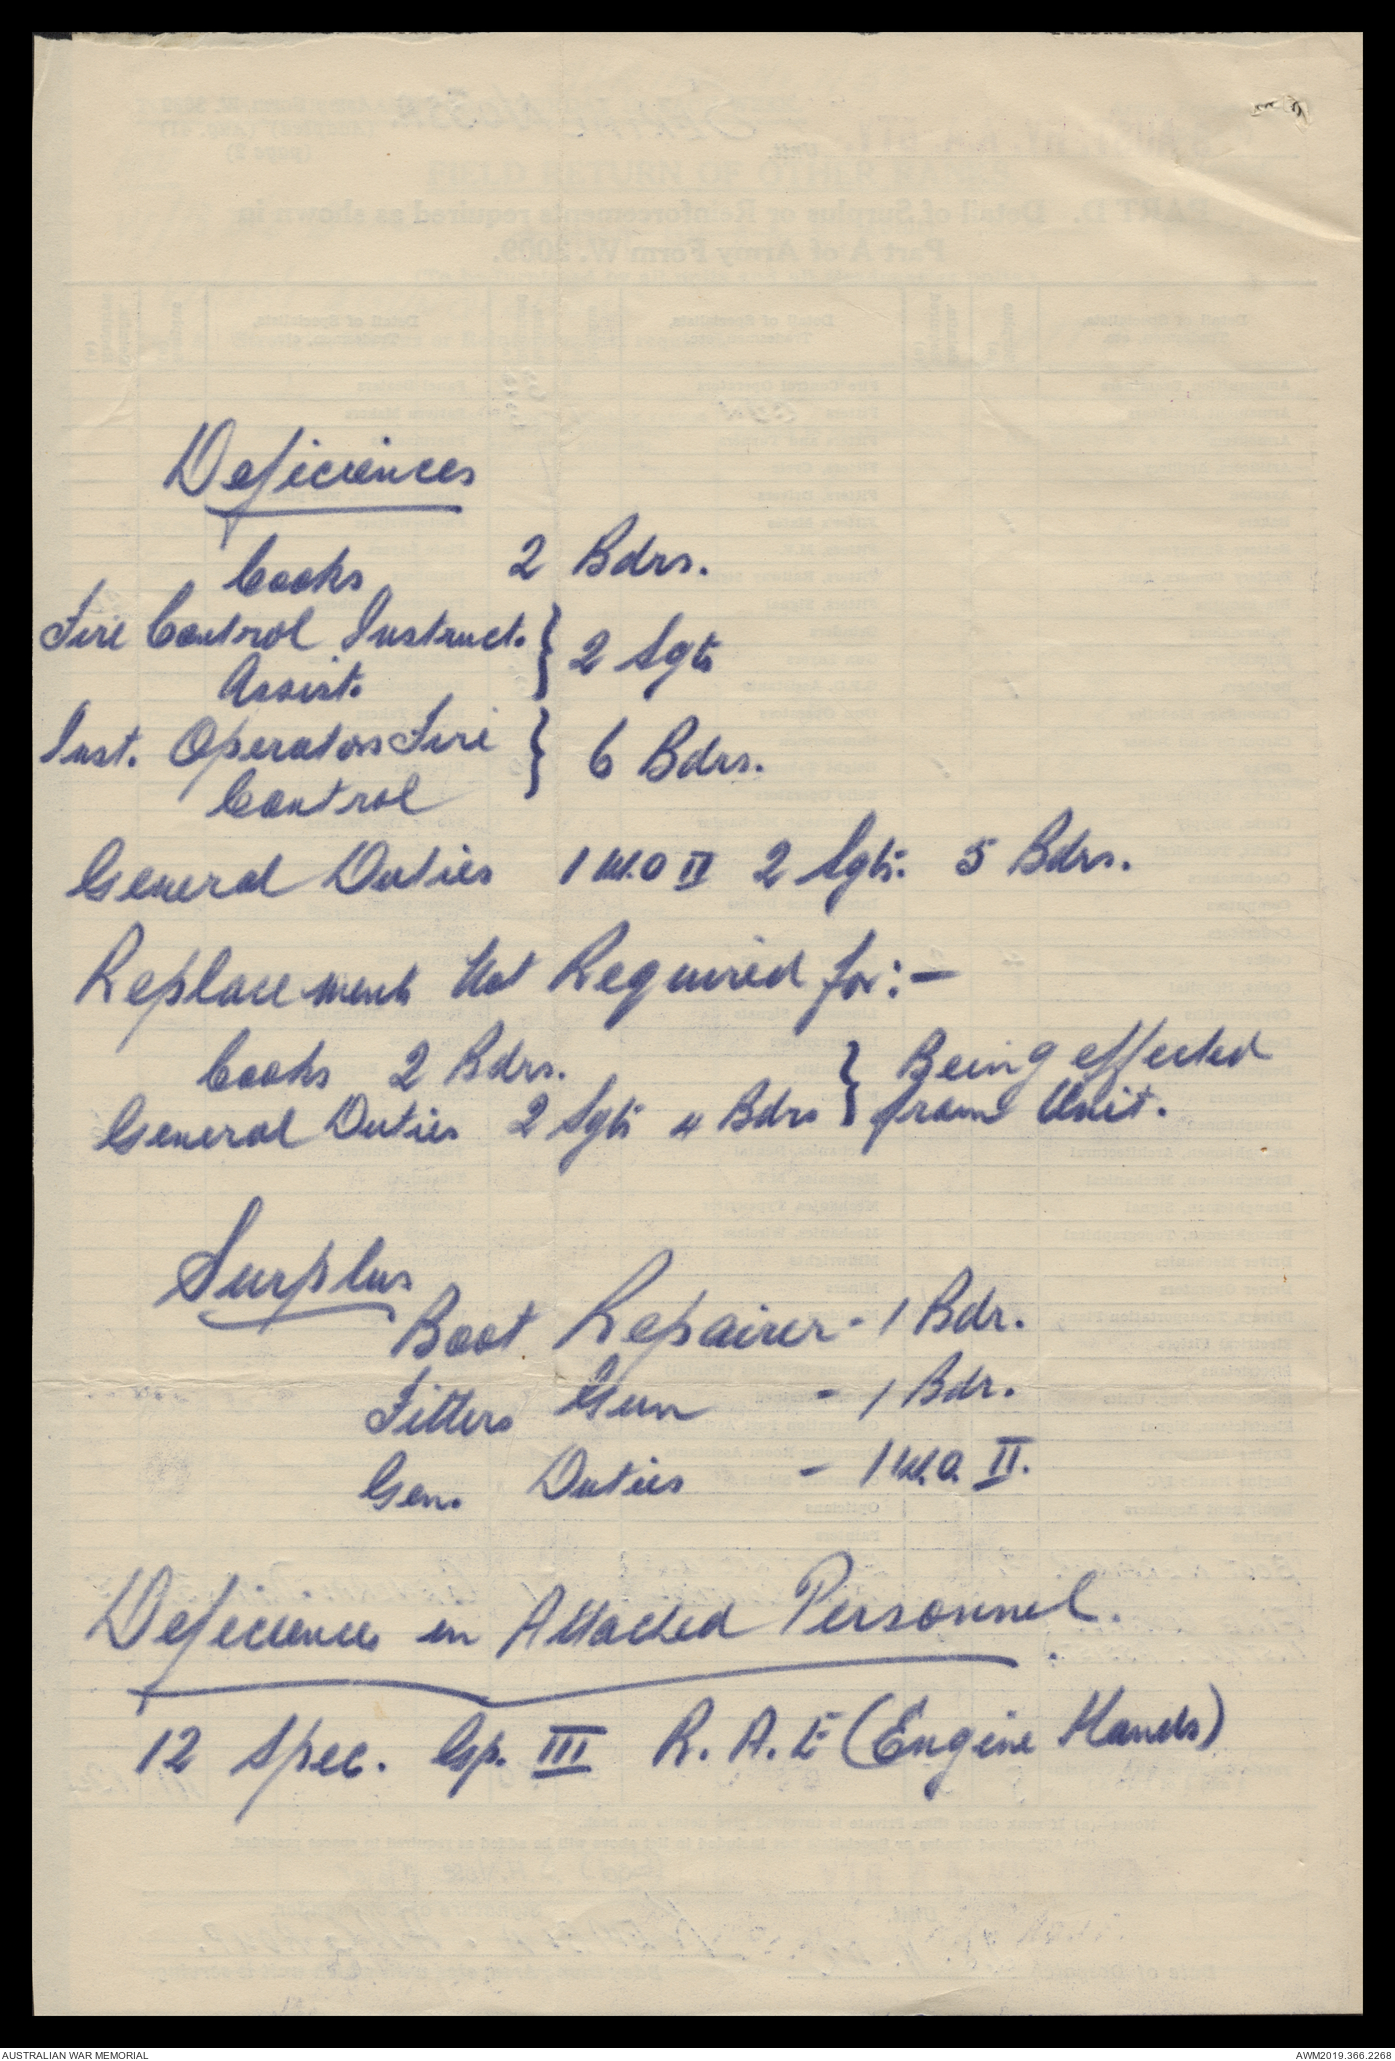 Deficiences
Cooks 2 Bdrs.
Fire Control Instruct. } 2 Sgts
Assist.
Inst. Operators Fire } 6 Bdrs.
Control
General Duties 1 W.O II 2 Sgts. 5 Bdrs.
Replacements Not Required for:-
Cooks 2 Bdrs. } Being effected
General Duties 2 Sgts 4 Bdrs } from Unit.
Surplus
Boot Repairer - 1 Bdr.
Fitters Gun - 1 Bdr.
Gen. Duties - 1 W.O. II.
Deficiences in Attached Personnel.
12 Spec. Gp. III R.A.E (Engine Hands)
AUSTRALIAN WAR MEMORIAL
AWM2019.366.2268